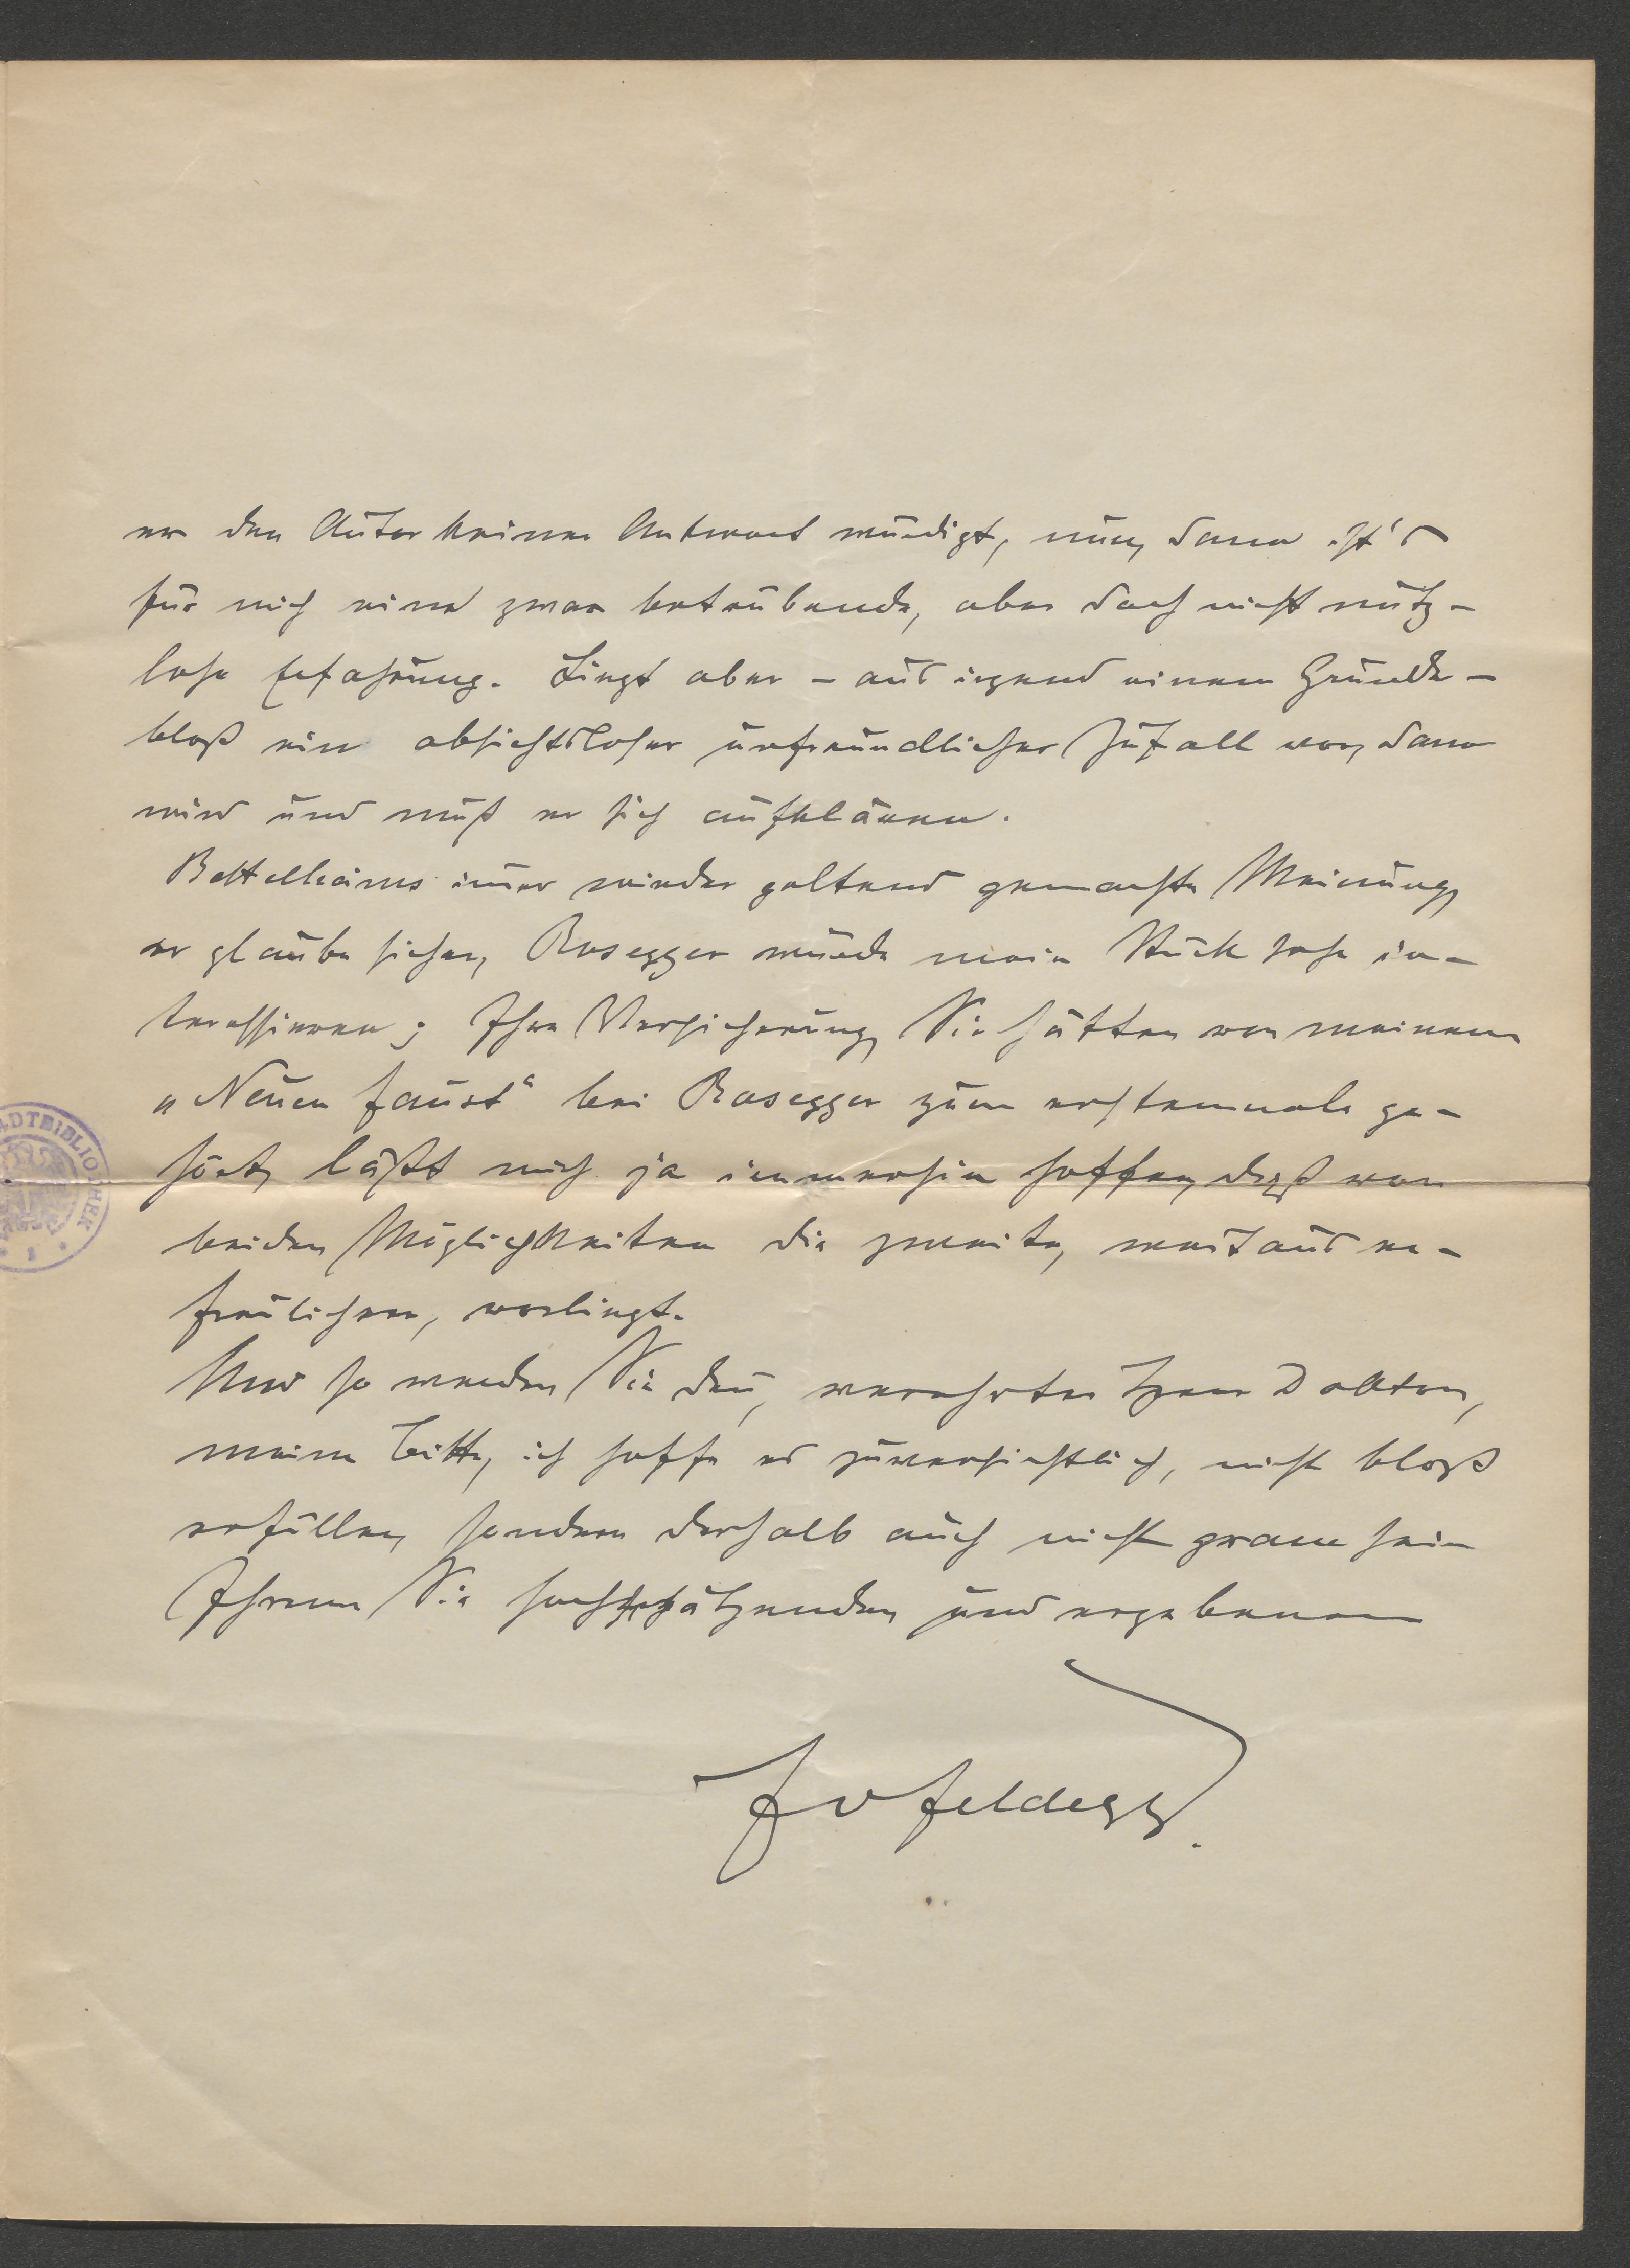 er den Autor keiner Antwort würdigt, nun, dann ist's
für mich eine zwar betrübende, aber doch nicht nutz-
lose Erfahrung. Liegt aber – aus irgend einem Grunde –
bloß ein absichtsloser unfreundlicher Zufall vor, dann
wird und muß er sich aufklären.
Bettelheims immer wieder geltend gemachte Meinung,
er glaube sicher, Rosegger würde mein Stück sehr in-
teressieren; Ihre Versicherung, Sie hätten von meinem
„Neuen Faust“ bei Rosegger zum erstenmale ge-
hört, läßt mich ja immerhin hoffen, daß von
beiden Möglichkeiten die zweite, weitaus er-
freulichere, vorliegt.
Und so werden Sie denn, verehrter Herr Doktor,
meine Bitte, ich hoffe es zuversichtlich, nicht bloß
erfüllen, sondern deshalb auch nicht gram sein
Ihrem Sie hochschätzenden und ergebenen
F v Feldegg.
STADTBIBLIOTHEK